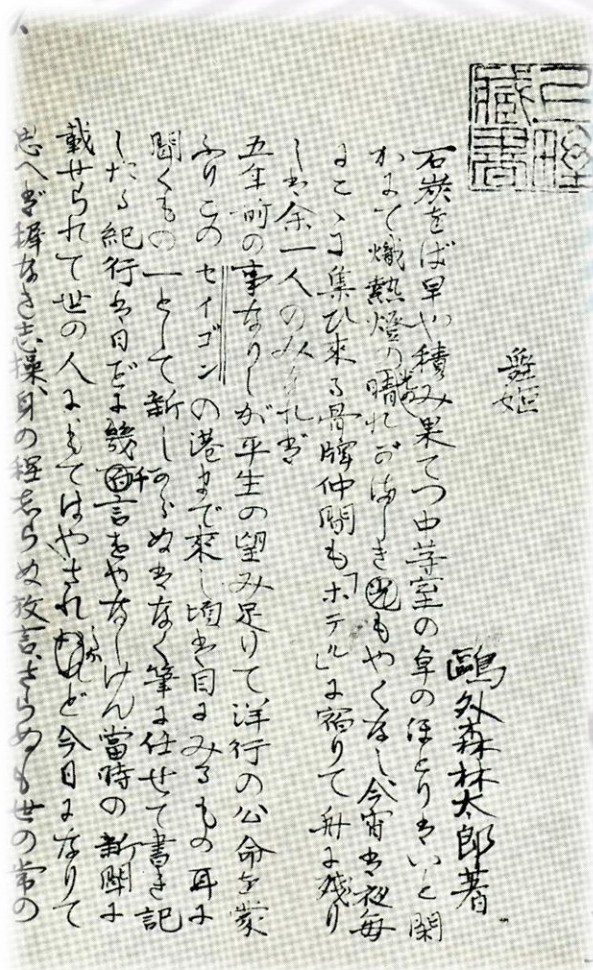 藏書
舞姫
鷗外森林太郎著
石炭をば早や積み果てつ中等室の卓のほとりはいと閑
かにて熾熱燈の晴れがましき光もやくなし今宵は夜毎
にこゝに集ひ來る骨牌仲間も「ホテル」に宿りて舟に殘り
しは余一人のみなれば
五年前の事なりしが平生の望み足りて洋行の公命を蒙
ふりこのセイゴンの港まで來し頃は目にみるもの耳に
聞くもの一として新しからぬはなく筆に任せて書き記
したる紀行は日ごとに幾千言をやなしけん當時の新聞に
載せられて世の人にもてはやされしかど今日になりて
思へば穉なき志操、身の程志らぬ放言、さらぬも世の常の